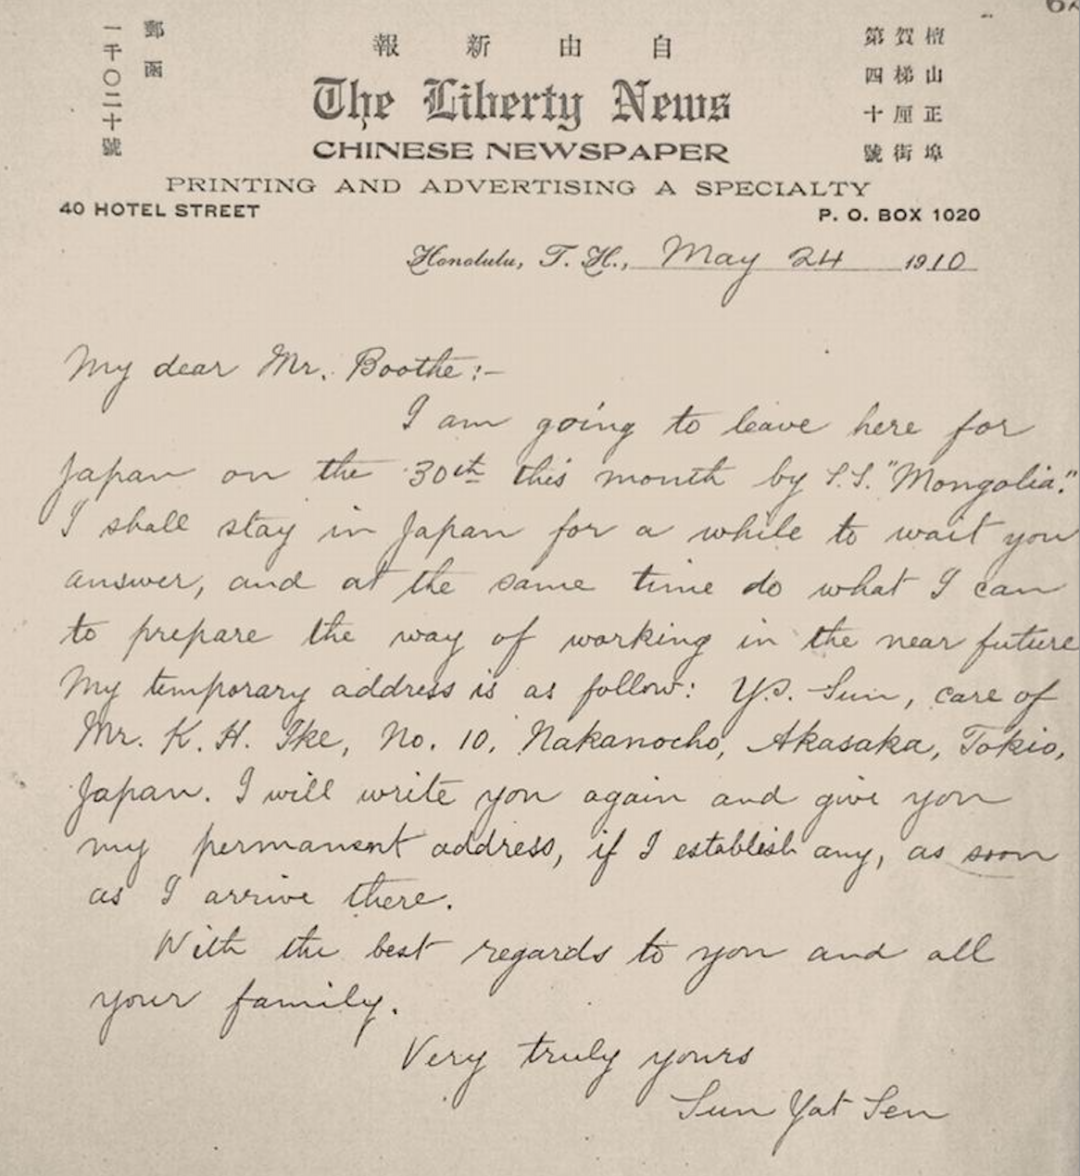 郵函
一千〇二十號
自由新報
檀山正埠
賀梯厘街
第四十號
The Liberty News
CHINESE NEWSPAPER
PRINTING AND ADVERTISING A SPECIALTY
40 HOTEL STREET
P. O. BOX 1020
Honolulu, T. H., May 24 1910
My dear Mr. Boothe:-
I am going to leave here for
Japan on the 30th this month by S.S. "Mongolia."
I shall stay in Japan for a while to wait you
answer, and at the same time do what I can
to prepare the way of working in the near future
My temporary address is as follow: Y.S. Sun, care of
Mr. K. H. Ike, No. 10, Nakanocho, Akasaka, Tokio,
Japan. I will write you again and give you
my permanent address, if I establish any, as soon
as I arrive there.
With the best regards to you and all
your family.
Very truly yours
Sun Yat Sen